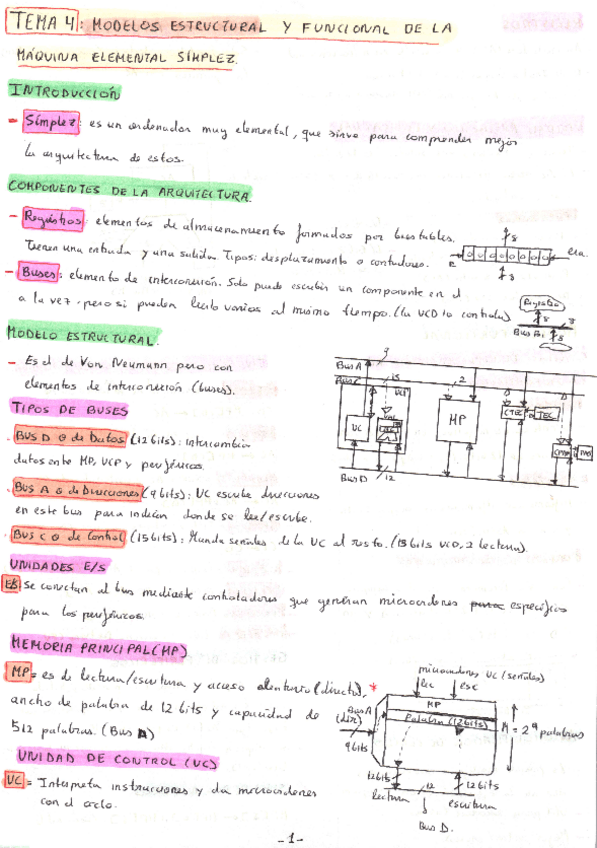 TEMA 4: MODELOS ESTRUCTURAL Y FUNCIONAL DE LA
MÁQUINA ELEMENTAL SÍMPLEZ.
INTRODUCCIÓN
- Símplez: es un ordenador muy elemental, que sirve para comprender mejor
la arquitectura de estos.
COMPONENTES DE LA ARQUITECTURA.
- Registros: elementos de almacenamiento formados por biestables.
Tienen una entrada y una salida. Tipos: desplazamiento o contadores.
- Buses: elemento de interconexión. Solo puede escribir un componente en él
a la vez, pero si pueden leerlo varios al mismo tiempo. (la UCD lo controla)
8
8
Registro
8
Bus A
8
MODELO ESTRUCTURAL.
- Es el de Von Neumann pero con
elementos de interconexión (buses).
Bus A
9
Bus C
15
2
UC
MP
CTEC
TEC
Bus D
12
TIPOS DE BUSES
. BUS D o de Datos (12 bits): intercambia
datos entre MP, UCP y periféricos.
. BUS A o de Direcciones (9 bits): UC escribe direcciones
en este bus para indicar donde se lee/escribe.
. BUS C o de Control (15 bits): Manda señales de la UC al resto. (13 bits UCD, 2 lectura).
UNIDADES E/S
ES Se conectan al bus mediante controladores que generan microordenes específicas
para los periféricos.
MEMORIA PRINCIPAL (MP)
MP = es de lectura/escritura y acceso aleatorio (directo), *
ancho de palabra de 12 bits y capacidad de
512 palabras. (Bus A)
microordenes UC (señales)
lec
esc
MP
Palabra (12 bits)
Bus A
(dir)
9 bits
M = 2⁹ palabras
12 bits
12
12 bits
lectura
escritura
Bus D.
UNIDAD DE CONTROL (UC)
UC = Interpreta instrucciones y da microordenes
con el ciclo.
- 1 -